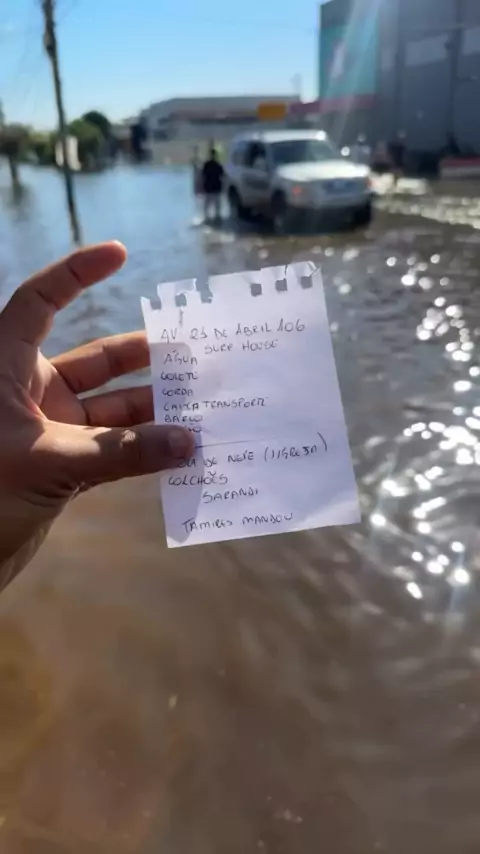 AV 21 DE ABRIL 106
SURF HOUSE
ÁGUA
COLETE
CORDA
CAIXA TRANSPORTE
BARCO
DE NEVE (IGREJA)
COLCHÕES
SARANDI
TAMIRES MANDOU